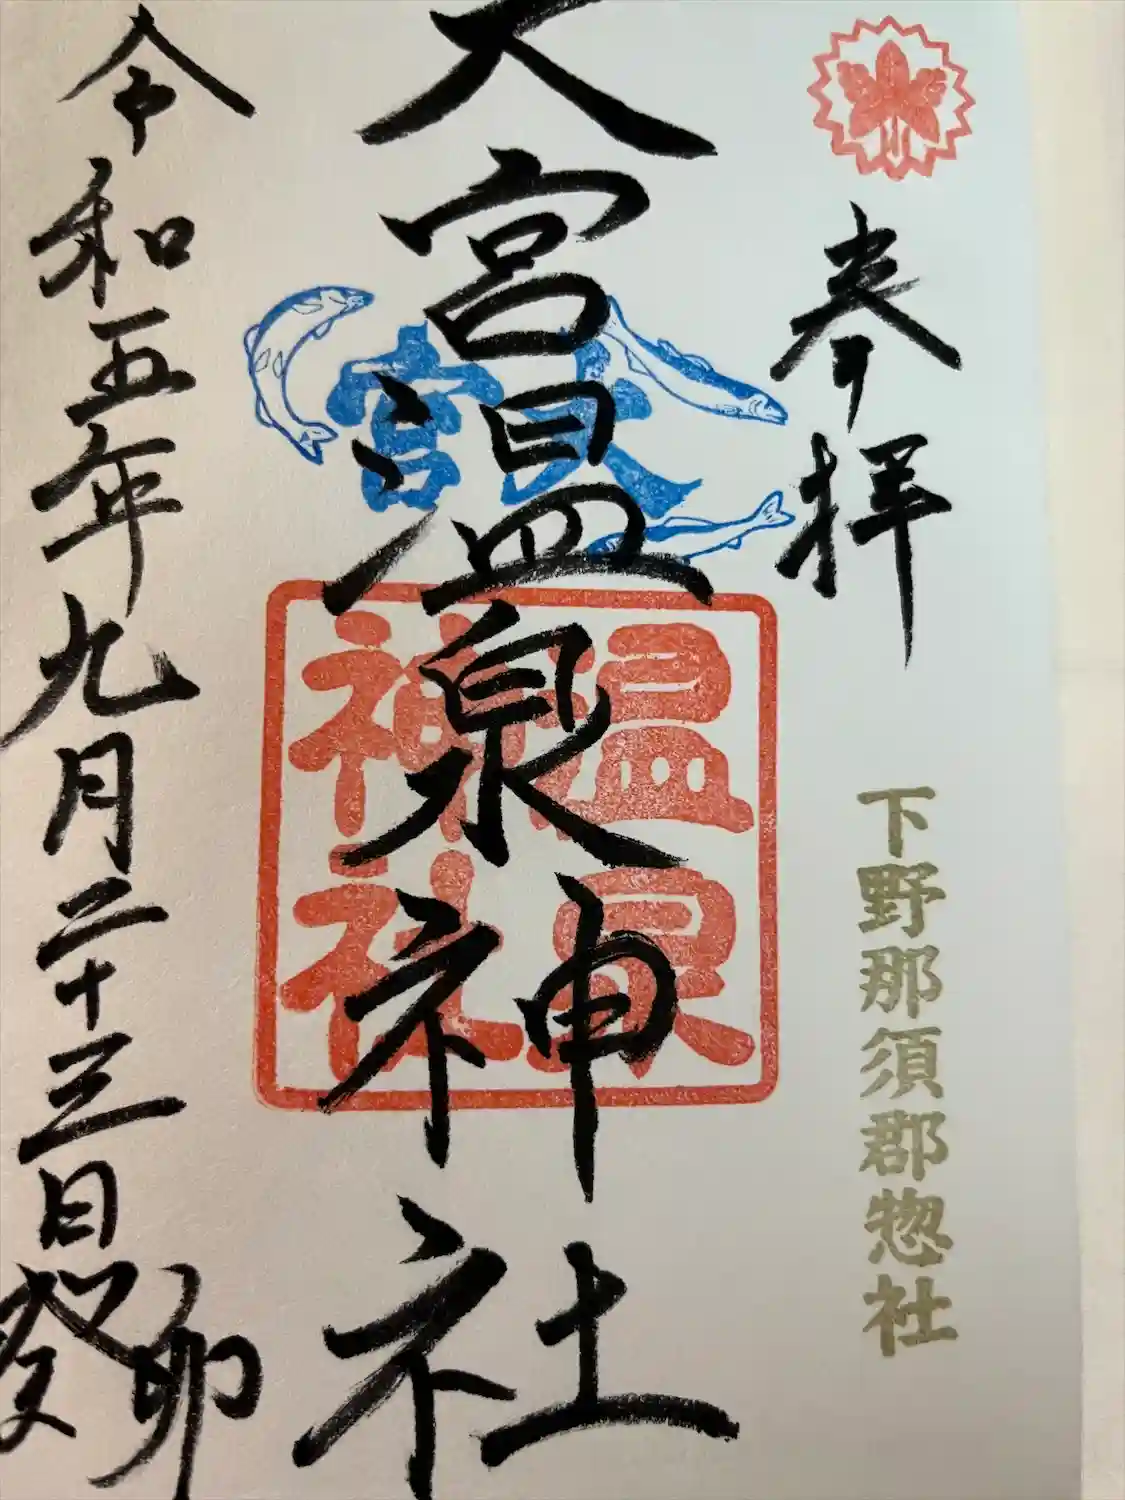 参拝
下野那須郡惣社
大宮温泉神社
大宮
温泉
神社
令和五年九月二十三日
癸卯